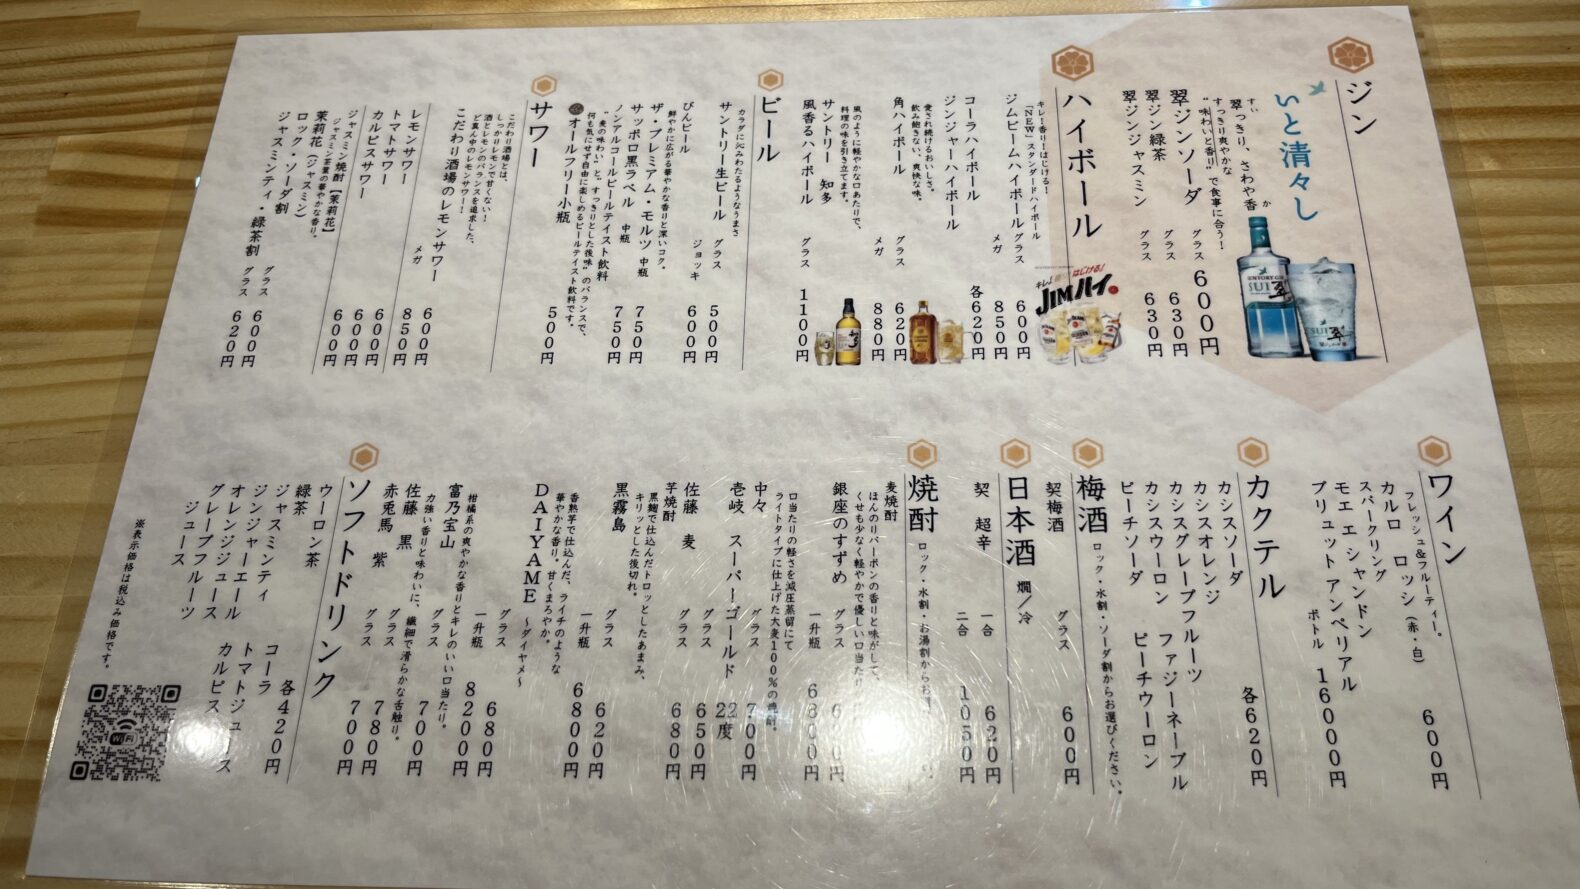 ジン
いと清々し
翠っきり、さわや香
すい
か
すっきり爽やかな
“味わいと香り”で食事に合う！
翠ジンソーダ グラス 600円
翠ジン緑茶 グラス 630円
翠ジンジャスミン グラス 630円
SUNTORY GIN
SUI
翠
ハイボール
キレ!香り!はじける!
「NEW」スタンダードハイボール
ジムビームハイボール グラス 600円
メガ 850円
コーラハイボール
ジンジャーハイボール 各620円
愛され続けるおいしさ。
飲み飽きない、爽快な味。
角ハイボール グラス 620円
メガ 880円
風のように軽やかな口あたりで、
料理の味を引き立てます。
サントリー 知多
風香るハイボール グラス 1100円
はじける!
JIMハイ
ビール
カラダに沁みわたるようなうまさ
サントリー生ビール グラス 500円
ジョッキ 600円
びんビール
鮮やかに広がる華やかな香りと深いコク。
ザ・プレミアム・モルツ 中瓶 750円
サッポロ黒ラベル 中瓶 750円
ノンアルコールビールテイスト飲料
“麦の味わい”と、すっきりとした後味”のバランスで、
何も気にせず自由に楽しめるビールテイスト飲料です。
オールフリー小瓶 500円
サワー
こだわり酒場とは、
しっかりレモンで甘くない！
酒とレモンのバランスを追求した、
ど真ん中のレモンサワー！
こだわり酒場のレモンサワー 600円
メガ 850円
レモンサワー
トマトサワー 600円
カルピスサワー 600円
ジャスミン焼酎【茉莉花】 600円
ジャスミン茶葉の華やかな香り。
茉莉花（ジャスミン）
ロック・ソーダ割 グラス 600円
ジャスミンティ・緑茶割 グラス 620円
ワイン
フレッシュ&フルーティー。
カルロ ロッシ（赤・白） 600円
スパークリング
モエ エ シャンドン
ブリュット アンペリアル ボトル 16000円
カクテル 各620円
カシスソーダ
カシスオレンジ
カシスグレープフルーツ
カシスウーロン ファジーネーブル
ピーチソーダ ピーチウーロン
梅酒 ロック・水割・ソーダ割からお選びください。
契梅酒 グラス 600円
日本酒 燗／冷
契 超辛 一合 620円
二合 1050円
焼酎 ロック・水割・お湯割からお選
麦焼酎
ほんのりバーボンの香りと味がして、
くせも少なく軽やかで優しい口当たり
銀座のすずめ グラス
一升瓶
口当たりの軽さを減圧蒸留にて
ライトタイプに仕上げた大麦100%の焼酎。
中々 グラス 700円
壱岐 スーパーゴールド 22度
グラス 650円
佐藤 麦 グラス 680円
芋焼酎
黒麹で仕込んだトロッとしたあまみ、
キリッとした後切れ。
黒霧島 グラス 620円
一升瓶 6800円
香熟芋で仕込んだ、ライチのような
華やかな香り。甘くまろやか。
DAIYAME ～ダイヤメ～
グラス 680円
一升瓶 8200円
柑橘系の爽やかな香りとキレのいい口当たり。
富乃宝山 グラス 700円
力強い香りと味わいに、繊細で滑らかな舌触り。
佐藤 黒 グラス 780円
赤兎馬 紫 グラス 700円
ソフトドリンク 各420円
ウーロン茶 コーラ
緑茶 トマトジュース
ジャスミンティ カルピス
ジンジャーエール
オレンジジュース
グレープフルーツ
ジュース
※表示価格は税込み価格です。
WiFi